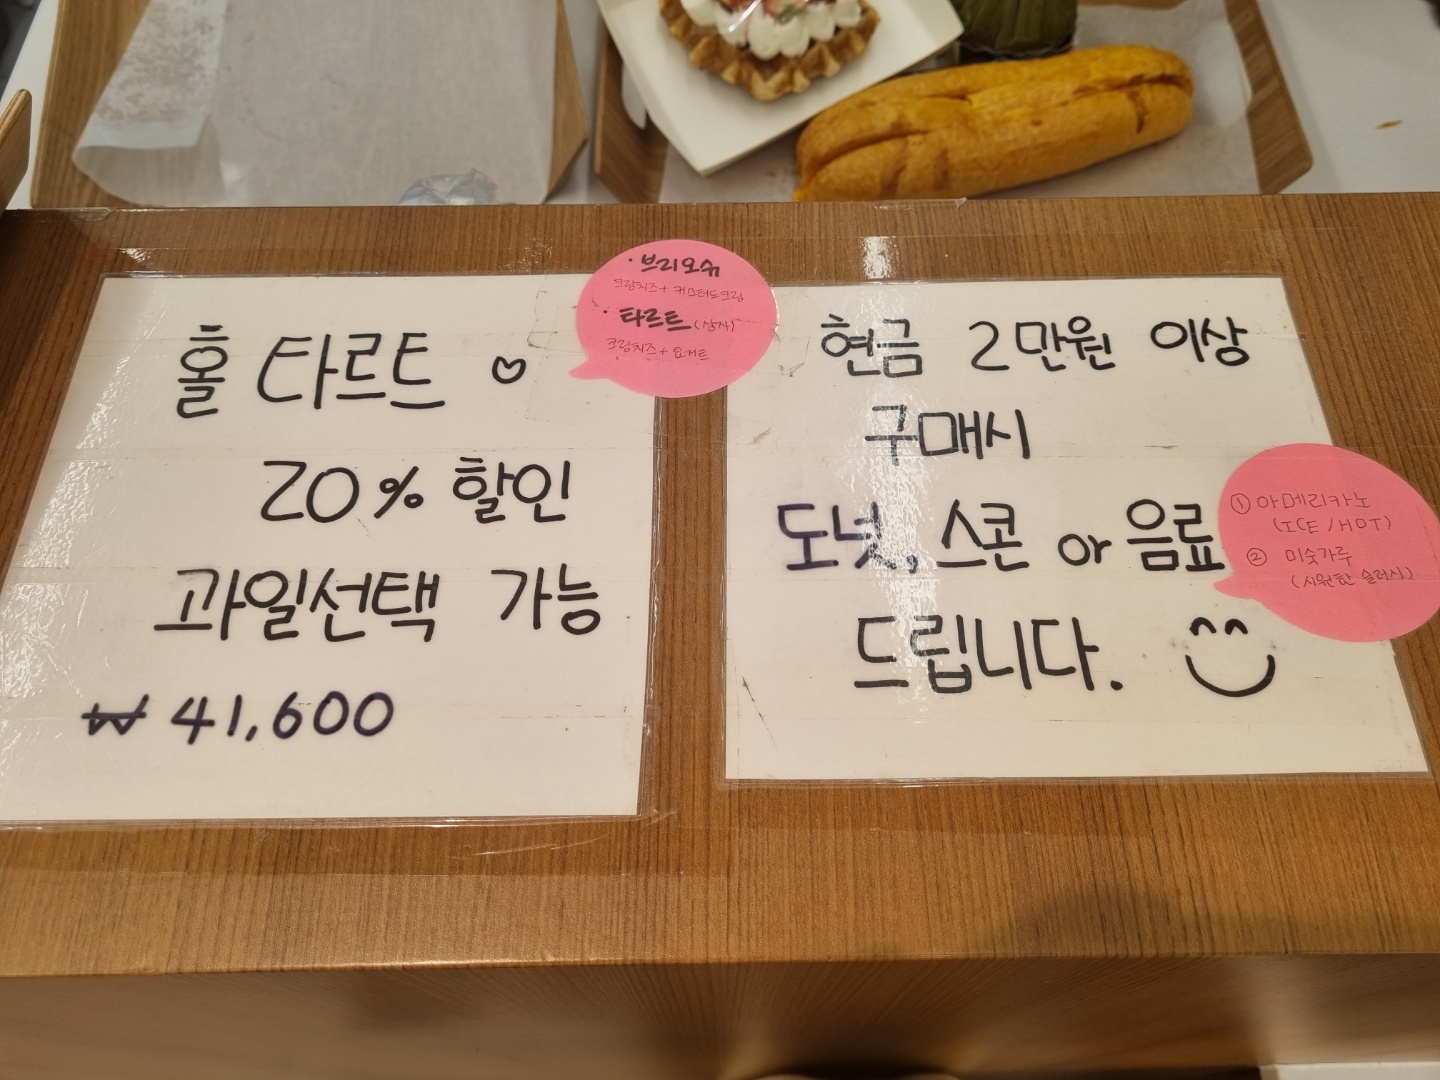 홀 타르트 ♡
20% 할인
과일선택 가능
₩ 41,600
· 브리오슈
크림치즈 + 커스터드크림
· 타르트 (상자)
크림치즈 + 요거트
현금 2만원 이상
구매시
도넛, 스콘 or 음료
드립니다.
① 아메리카노
(ICE / HOT)
② 미숫가루
(시원한 슬러시)